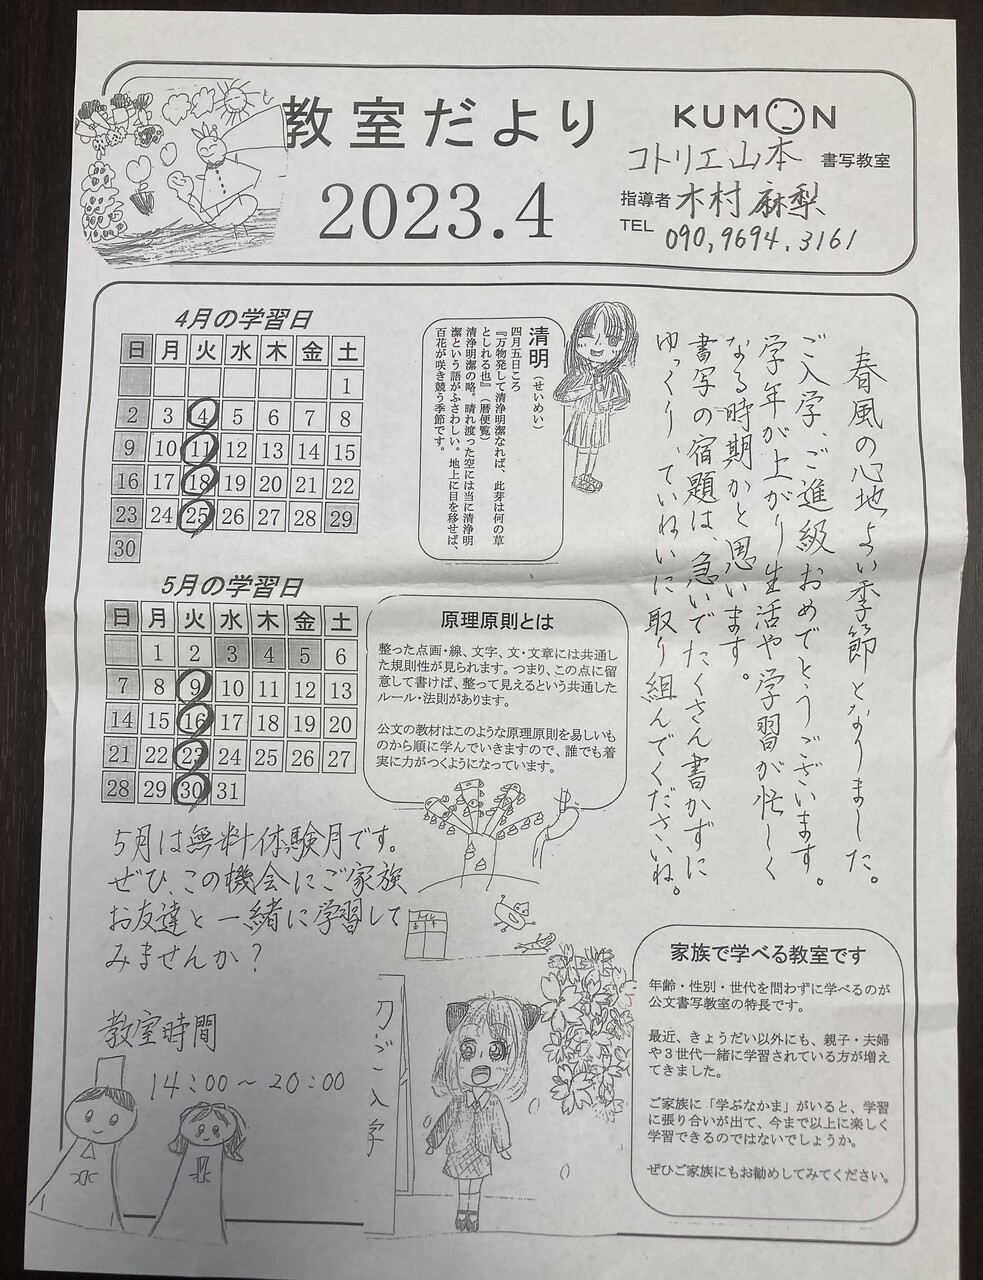 教室だより
2023.4
KUMON
コトリエ山本 書写教室
指導者 木村 麻梨
TEL 090,9694,3161
4月の学習日
日 月 火 水 木 金 土
1
2 3 4 5 6 7 8
9 10 11 12 13 14 15
16 17 18 19 20 21 22
23 24 25 26 27 28 29
30
清明(せいめい)
四月五日ころ
『万物発して清浄明潔なれば、此芽は何の草
としれる也』(暦便覧)
清浄明潔の略。晴れ渡った空には当に清浄明
潔という語がふさわしい。地上に目を移せば、
百花が咲き競う季節です。
春風の心地よい季節となりました。
ご入学、ご進級おめでとうございます。
学年が上がり生活や学習が忙しく
なる時期かと思います。
書写の宿題は、急いでたくさん書かずに
ゆっくり、ていねいに取り組んでくださいね。
5月の学習日
日 月 火 水 木 金 土
1 2 3 4 5 6
7 8 9 10 11 12 13
14 15 16 17 18 19 20
21 22 23 24 25 26 27
28 29 30 31
原理原則とは
整った点画・線、文字、文・文章には共通し
た規則性が見られます。つまり、この点に留
意して書けば、整って見えるという共通した
ルール・法則があります。
公文の教材はこのような原理原則を易しいも
のから順に学んでいきますので、誰でも着
実に力がつくようになっています。
5月は無料体験月です。
ぜひ、この機会にご家族
お友達と一緒に学習して
みませんか?
教室時間
14:00～20:00
ご入学
家族で学べる教室です
年齢・性別・世代を問わずに学べるのが
公文書写教室の特長です。
最近、きょうだい以外にも、親子・夫婦
や3世代一緒に学習されている方が増え
てきました。
ご家族に「学ぶなかま」がいると、学習
に張り合いが出て、今まで以上に楽しく
学習できるのではないでしょうか。
ぜひご家族にもお勧めしてみてください。